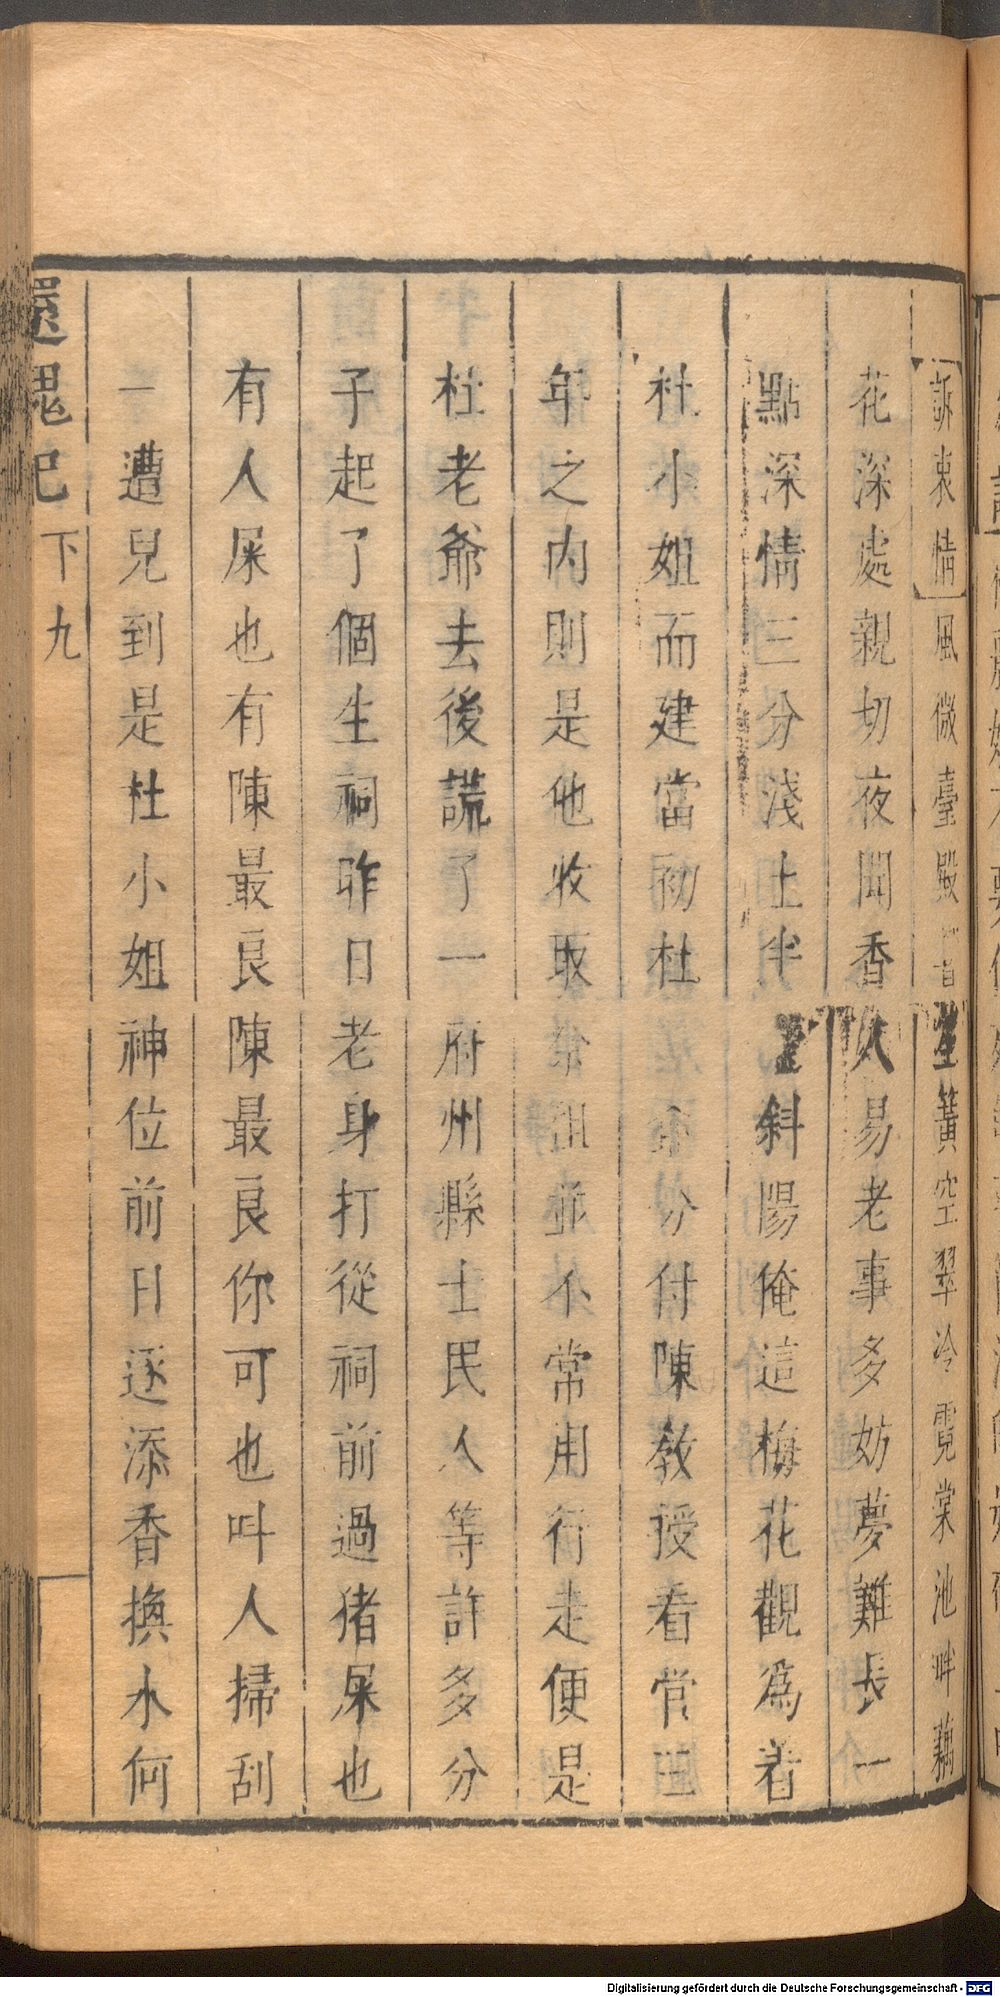 訴衷情風微臺殿笙簧空翠冷霓裳池畔藕
花深處親切夜聞香人易老事多妨夢難長一
點深情三分淺土半斜陽俺這梅花觀為着
杜小姐而建當初杜分付陳教授看管三
年之内則是他收取祭租並不常用行走便是
杜老爺去後謊了一府州縣士民人等許多分
子起了個生祠昨日老身打從祠前過猪屎也
有人屎也有陳最良陳最良你可也叫人掃刮
一遭兒到是杜小姐神位前日逐添香換水何
還魂記
下
九
Digitalisierung gefördert durch die Deutsche Forschungsgemeinschaft - DFG